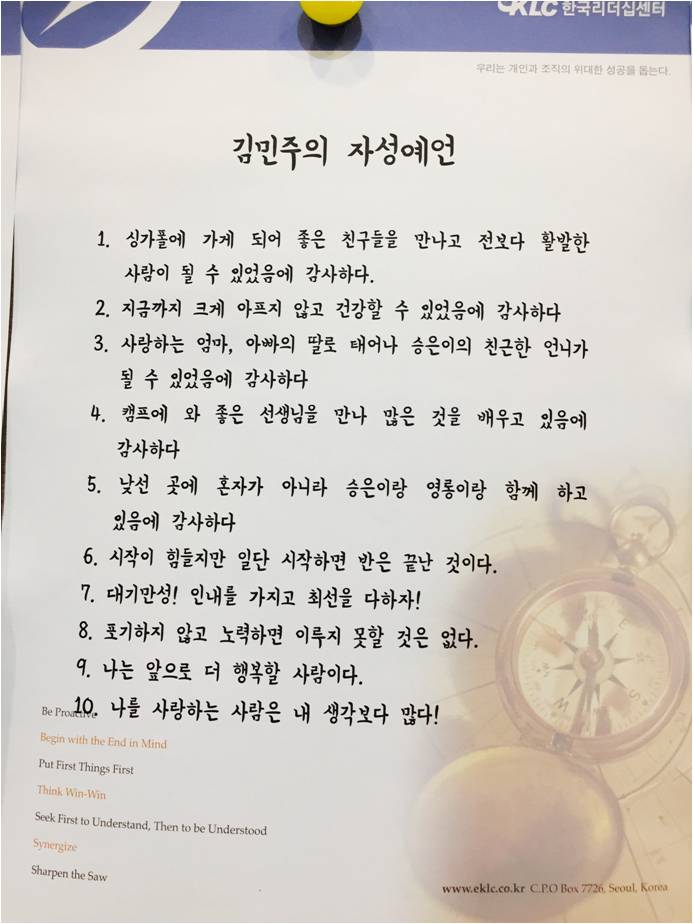 KLC 한국리더십센터
우리는 개인과 조직의 위대한 성공을 돕는다.
김민주의 자성예언
1. 싱가폴에 가게 되어 좋은 친구들을 만나고 전보다 활발한
사람이 될 수 있었음에 감사하다.
2. 지금까지 크게 아프지 않고 건강할 수 있었음에 감사하다
3. 사랑하는 엄마, 아빠의 딸로 태어나 승은이의 친근한 언니가
될 수 있었음에 감사하다
4. 캠프에 와 좋은 선생님을 만나 많은 것을 배우고 있음에
감사하다
5. 낯선 곳에 혼자가 아니라 승은이랑 영롱이랑 함께 하고
있음에 감사하다
6. 시작이 힘들지만 일단 시작하면 반은 끝난 것이다.
7. 대기만성! 인내를 가지고 최선을 다하자!
8. 포기하지 않고 노력하면 이루지 못할 것은 없다.
9. 나는 앞으로 더 행복할 사람이다.
10. 나를 사랑하는 사람은 내 생각보다 많다!
Be Proactive
Begin with the End in Mind
Put First Things First
Think Win-Win
Seek First to Understand, Then to be Understood
Synergize
Sharpen the Saw
www.eklc.co.kr C.P.O Box 7726, Seoul, Korea